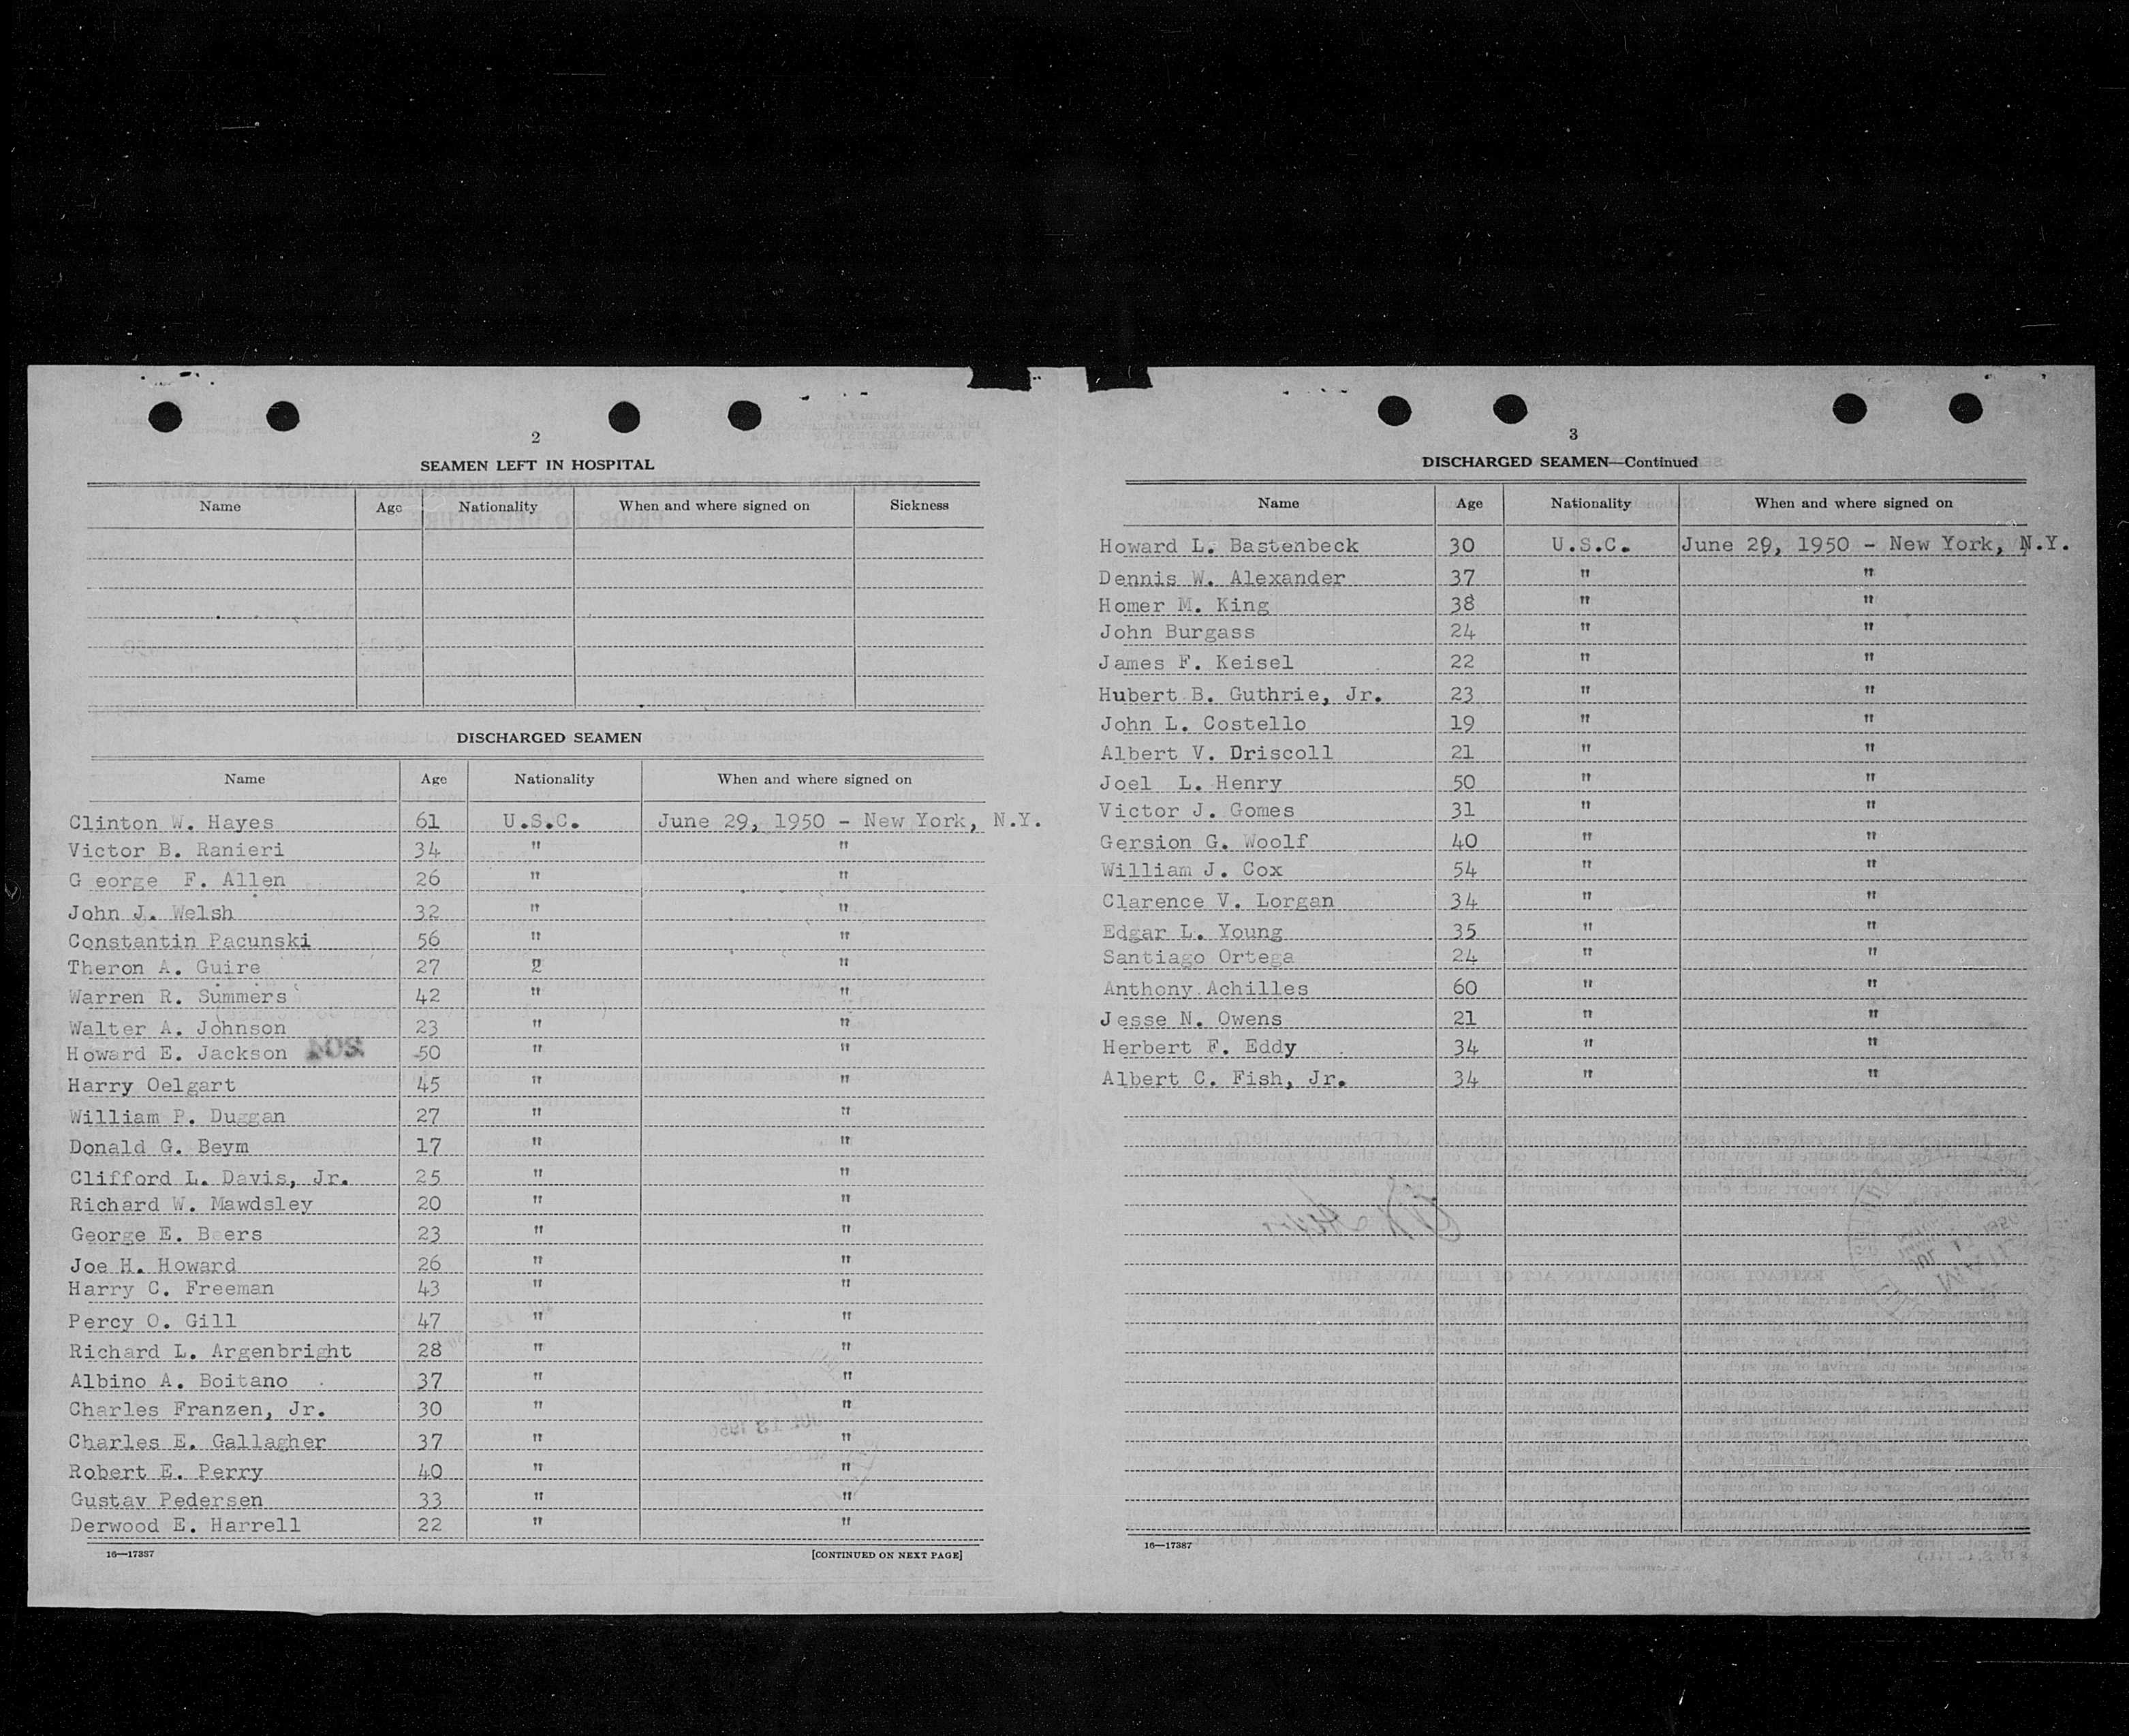 2
SEAMEN LEFT IN HOSPITAL
Name Age Nationality When and where signed on Sickness
DISCHARGED SEAMEN
Name Age Nationality When and where signed on
Clinton W. Hayes 61 U.S.C. June 29, 1950 - New York, N.Y.
Victor B. Ranieri 34 " "
G eorge F. Allen 26 " "
John J. Welsh 32 " "
Constantin Pacunski 56 " "
Theron A. Guire 27 2 "
Warren R. Summers 42 " "
Walter A. Johnson 23 " "
Howard E. Jackson 50 " "
Harry Oelgart 45 " "
William P. Duggan 27 " "
Donald G. Beym 17 " "
Clifford L. Davis, Jr. 25 " "
Richard W. Mawdsley 20 " "
George E. Beers 23 " "
Joe H. Howard 26 " "
Harry C. Freeman 43 " "
Percy O. Gill 47 " "
Richard L. Argenbright 28 " "
Albino A. Boitano 37 " "
Charles Franzen, Jr. 30 " "
Charles E. Gallagher 37 " "
Robert E. Perry 40 " "
Gustav Pedersen 33 " "
Derwood E. Harrell 22 " "
16—17387 [CONTINUED ON NEXT PAGE]
3
DISCHARGED SEAMEN—Continued
Name Age Nationality When and where signed on
Howard L. Bastenbeck 30 U.S.C. June 29, 1950 - New York, N.Y.
Dennis W. Alexander 37 " "
Homer M. King 38 " "
John Burgass 24 " "
James F. Keisel 22 " "
Hubert B. Guthrie, Jr. 23 " "
John L. Costello 19 " "
Albert V. Driscoll 21 " "
Joel L. Henry 50 " "
Victor J. Gomes 31 " "
Gersion G. Woolf 40 " "
William J. Cox 54 " "
Clarence V. Lorgan 34 " "
Edgar L. Young 35 " "
Santiago Ortega 24 " "
Anthony Achilles 60 " "
Jesse N. Owens 21 " "
Herbert F. Eddy 34 " "
Albert C. Fish, Jr. 34 " "
16—17387